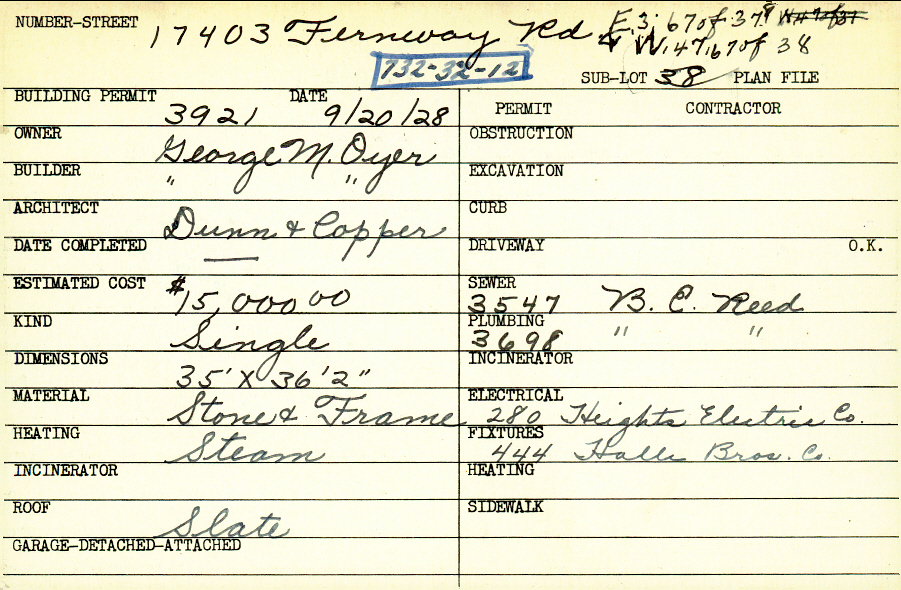 NUMBER-STREET 17403 Fernway Rd E. 3.67 of 37 &
W. 47.67 of 38
732-32-12
SUB-LOT 38 PLAN FILE
BUILDING PERMIT 3921 DATE 9/20/28
PERMIT CONTRACTOR
OWNER George M. Oyer
OBSTRUCTION
BUILDER " "
EXCAVATION
ARCHITECT Dunn & Copper
CURB
DATE COMPLETED —
DRIVEWAY O.K.
ESTIMATED COST $15,000.00
SEWER 3547 B. C. Reed
KIND Single
PLUMBING 3698 " "
DIMENSIONS 35' X 36'2"
INCINERATOR
MATERIAL Stone & Frame
ELECTRICAL 280 Heights Electric Co.
HEATING Steam
FIXTURES 444 Halle Bros. Co.
INCINERATOR
HEATING
ROOF Slate
SIDEWALK
GARAGE-DETACHED-ATTACHED